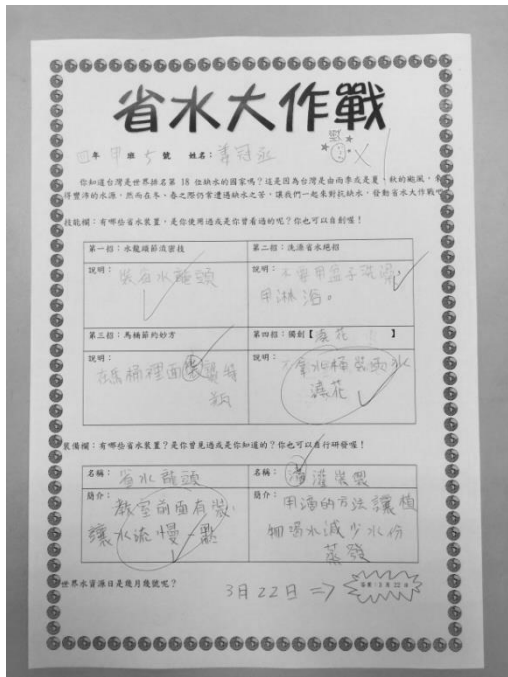 省水大作戰
四年 甲 班 5 號 姓名：
你知道台灣是世界排名第 18 位缺水的國家嗎？這是因為台灣是由雨季或是夏、秋的颱風，
得豐沛的水源，然而在冬、春之際仍常遭遇缺水之苦，讓我們一起來對抗缺水，發動省水大作戰吧
技能欄：有哪些省水裝置，是你使用過或是你曾看過的呢？你也可以自創喔！
第一招：水龍頭節流密技
說明：
裝省水龍頭
第二招：洗澡省水絕招
說明：不要用盆子洗澡，
用淋浴。
第三招：馬桶節約妙方
說明：
在馬桶裡面裝寶特
瓶
第四招：獨創【澆花】
說明：
拿水桶裝雨水
澆花
裝備欄：有哪些省水裝置？是你曾見過或是你知道的？你也可以自行研發喔！
名稱：省水龍頭
簡介：教室前面有裝，
讓水流慢一點
名稱：滴灌裝置
簡介：用滴的方法讓植
物喝水減少水份
蒸發
世界水資源日是幾月幾號呢？
3月22日 =>
答案：3月22日